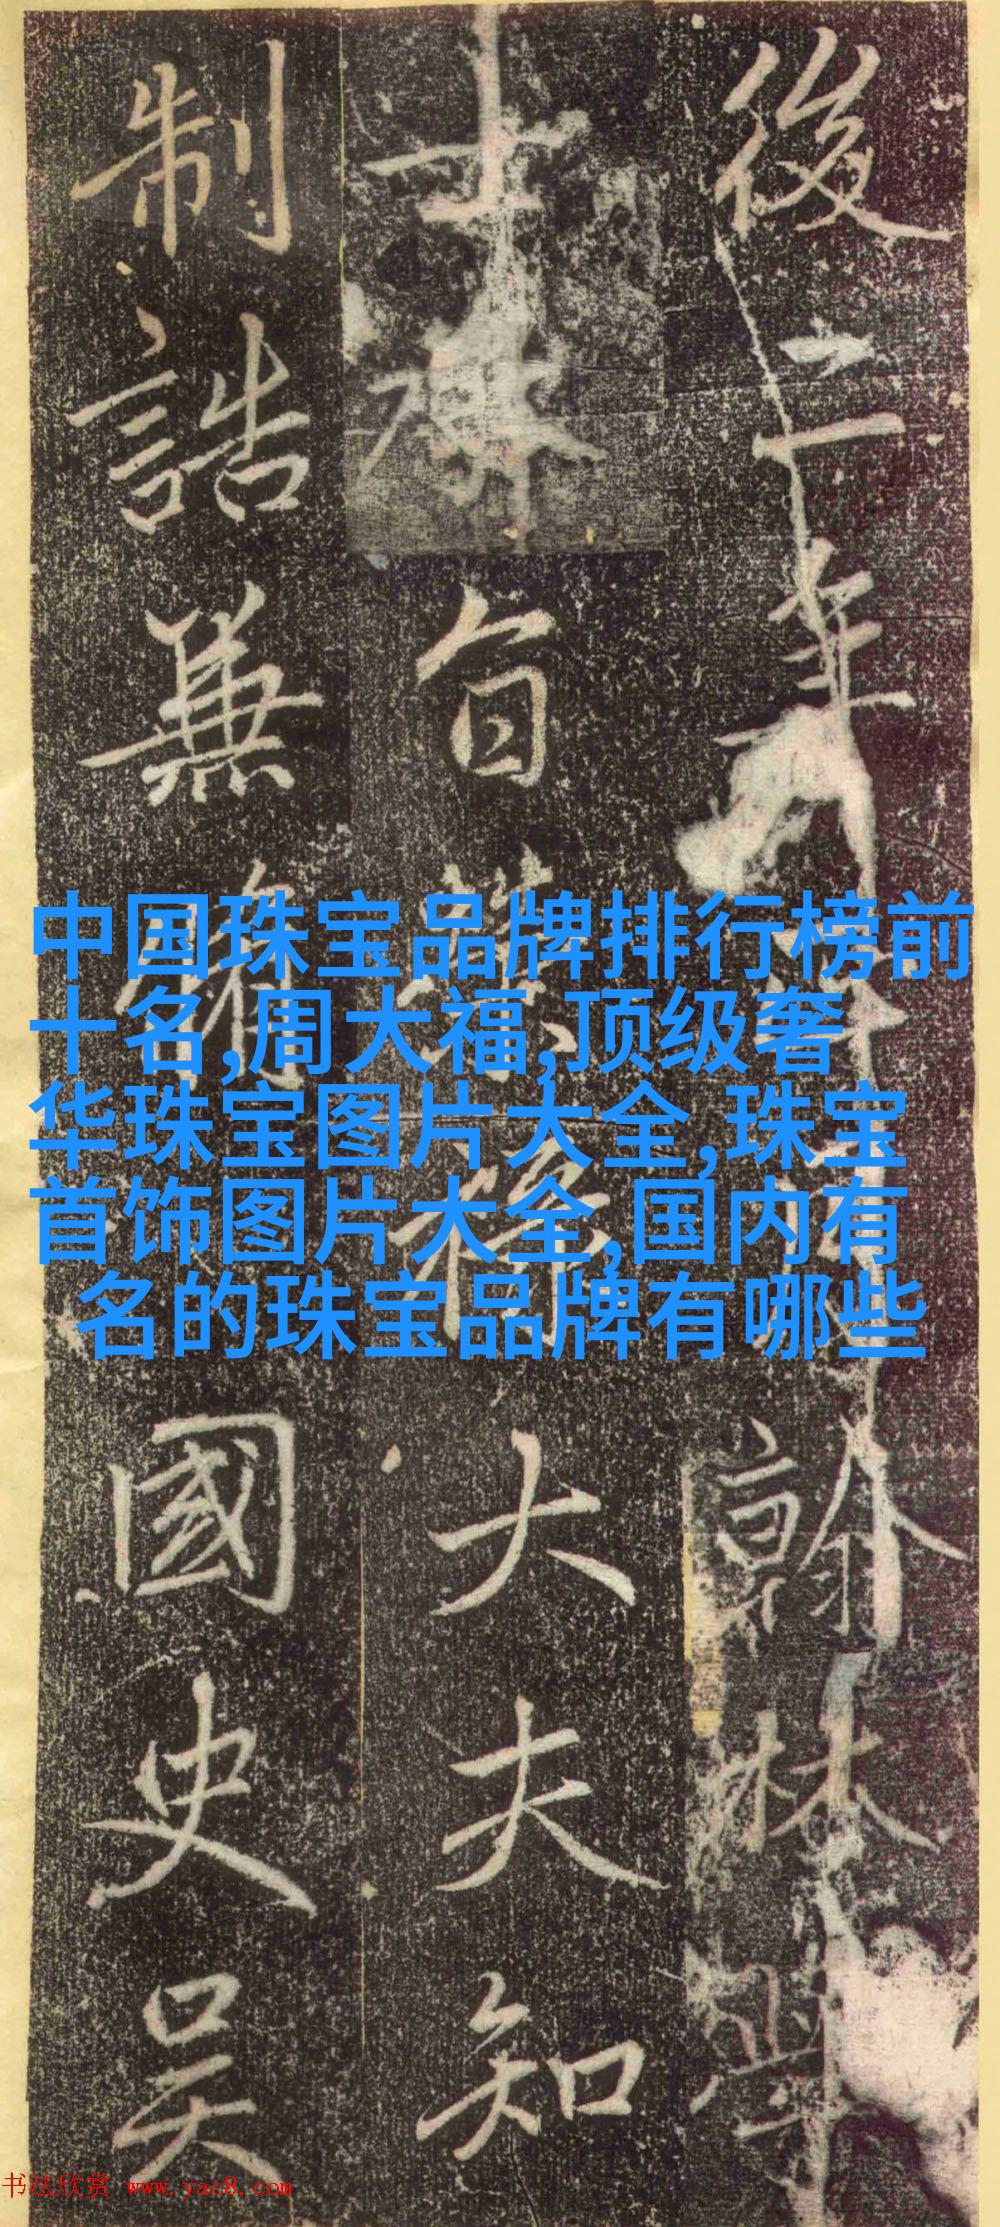 後二年
翰林學
士
旨
大夫知
制誥兼
國史吴
中国珠宝品牌排行榜前
十名,周大福,顶级奢
华珠宝图片大全,珠宝
首饰图片大全,国内有
名的珠宝品牌有哪些
书法欣赏 www.yac8.com